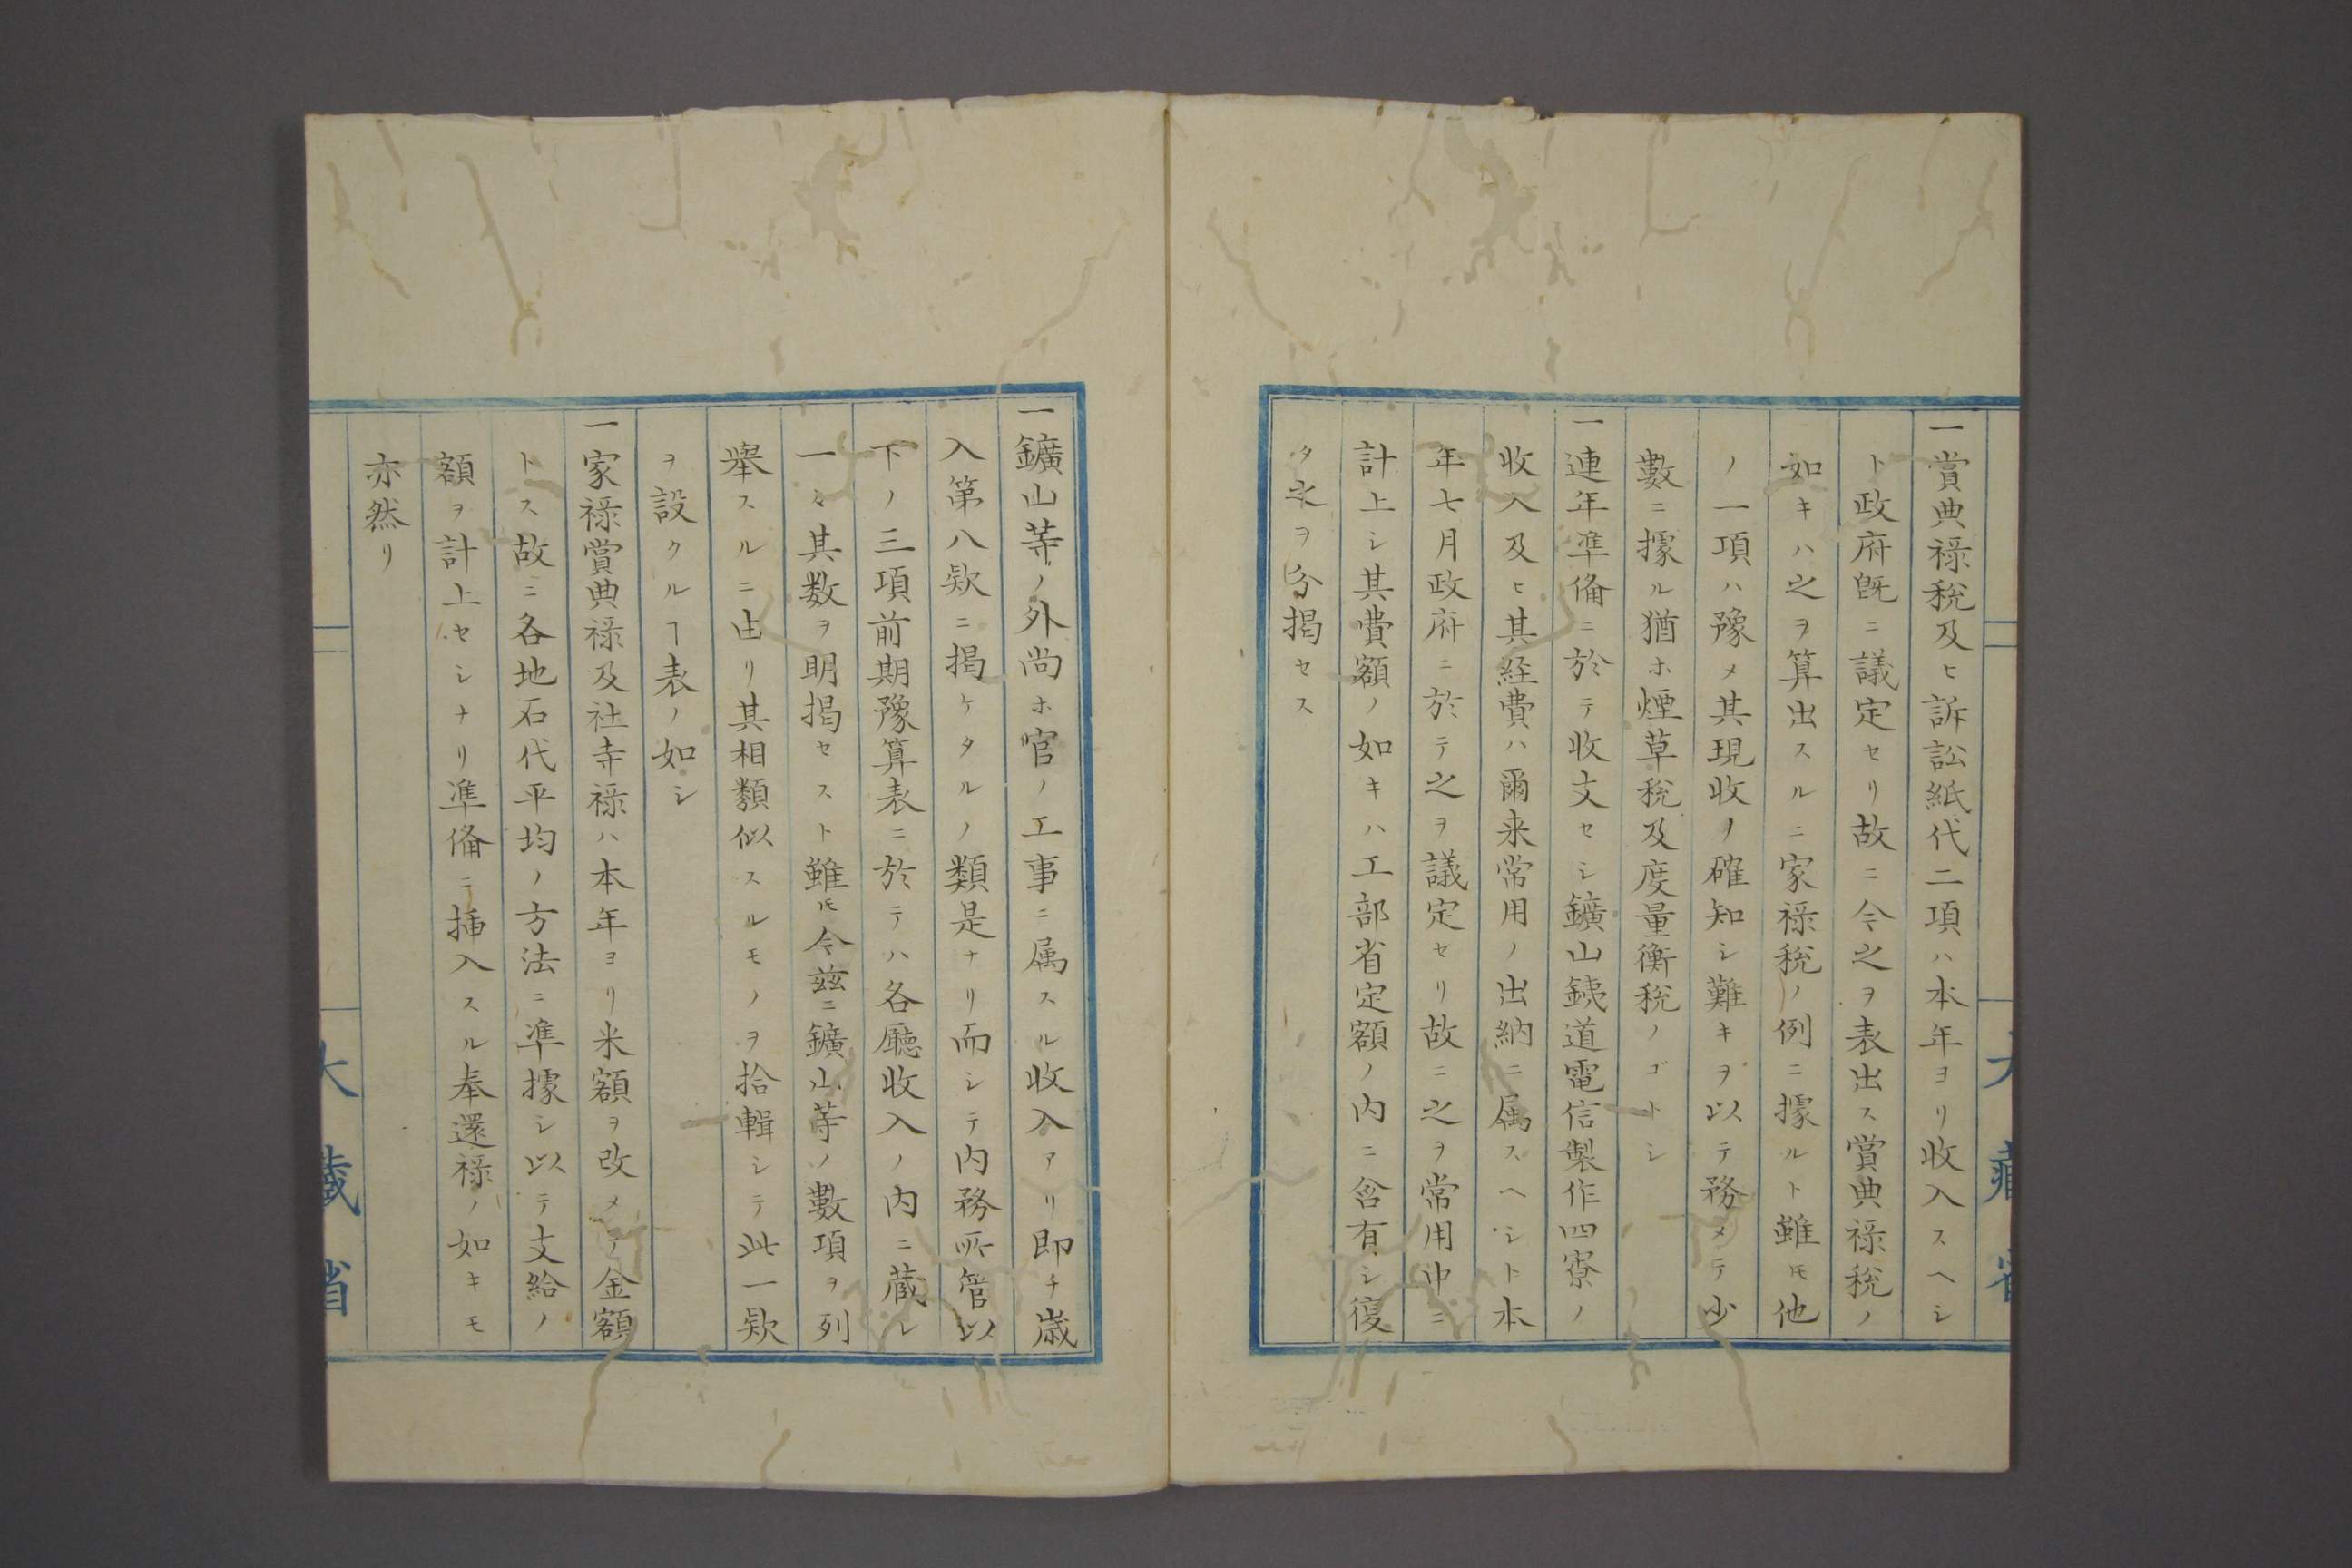 一賞典禄税及ヒ訴訟紙代二項ハ本年ヨリ收入スヘシ
ト政府既ニ議定セリ故ニ今之ヲ表出ス賞典禄税ノ
如キハ之ヲ算出スルニ家禄税ノ例ニ據ルト雖𪜈他
ノ一項ハ豫メ其現收ヲ確知シ難キヲ以テ務メテ少
數ニ據ル猶ホ煙草税及度量衡税ノゴトシ
一連年準備ニ於テ收支セシ鑛山銕道電信製作四寮ノ
收入及ヒ其経費ハ爾来常用ノ出納ニ属スヘシト本
年七月政府ニ於テ之ヲ議定セリ故ニ之ヲ常用中ニ
計上シ其費額ノ如キハ工部省定額ノ内ニ含有シ復
タ之ヲ分掲セス
大藏省
一鑛山等ノ外尚ホ官ノ工事ニ属スル收入アリ即チ歳
入第八欵ニ掲ケタルノ類是ナリ而シテ内務所管以
下ノ三項前期豫算表ニ於テハ各廳收入ノ内ニ蔵レ
一々其数ヲ明掲セスト雖𪜈今茲ニ鑛山等ノ數項ヲ列
舉スルニ由リ其相類似スルモノヲ拾輯シテ此一欵
ヲ設クルヿ表ノ如シ
一家禄賞典禄及社寺禄ハ本年ヨリ米額ヲ改メテ金額
トス故ニ各地石代平均ノ方法ニ準據シ以テ支給ノ
額ヲ計上セシナリ準備ニ挿入スル奉還禄ノ如キモ
亦然リ
大藏省